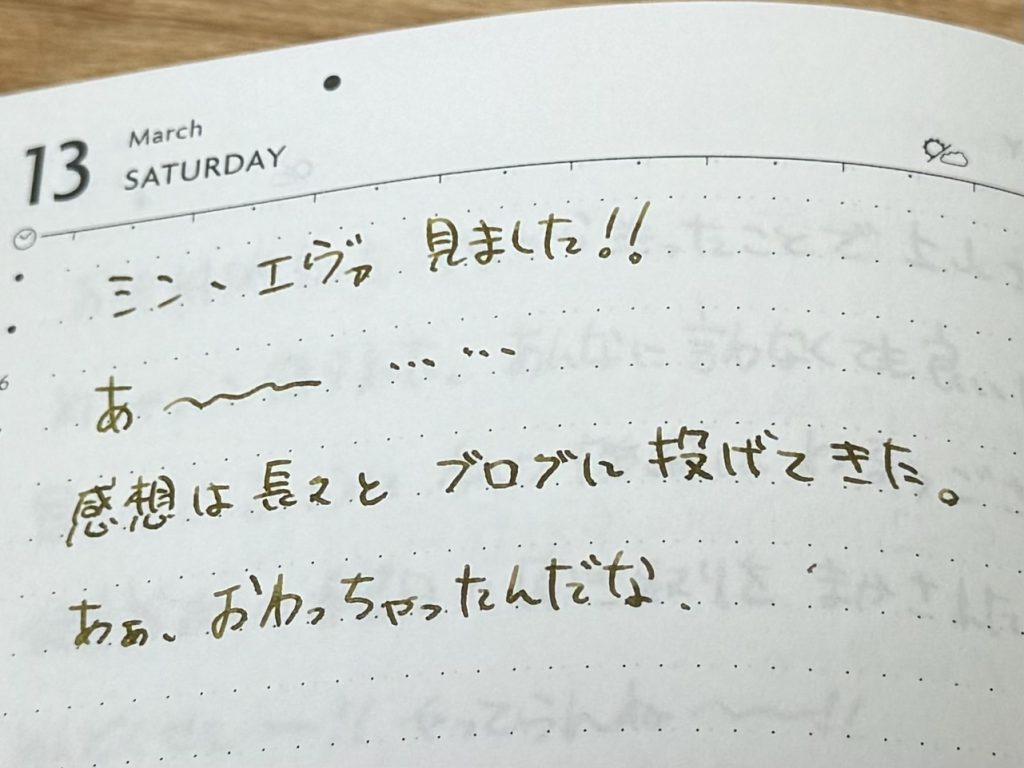 13 March
SATURDAY
ミン、エヴァ 見ました!!
あ〜〜〜 … …
感想は長々と ブログに投げてきた。
あぁ、おわっちゃったんだな、